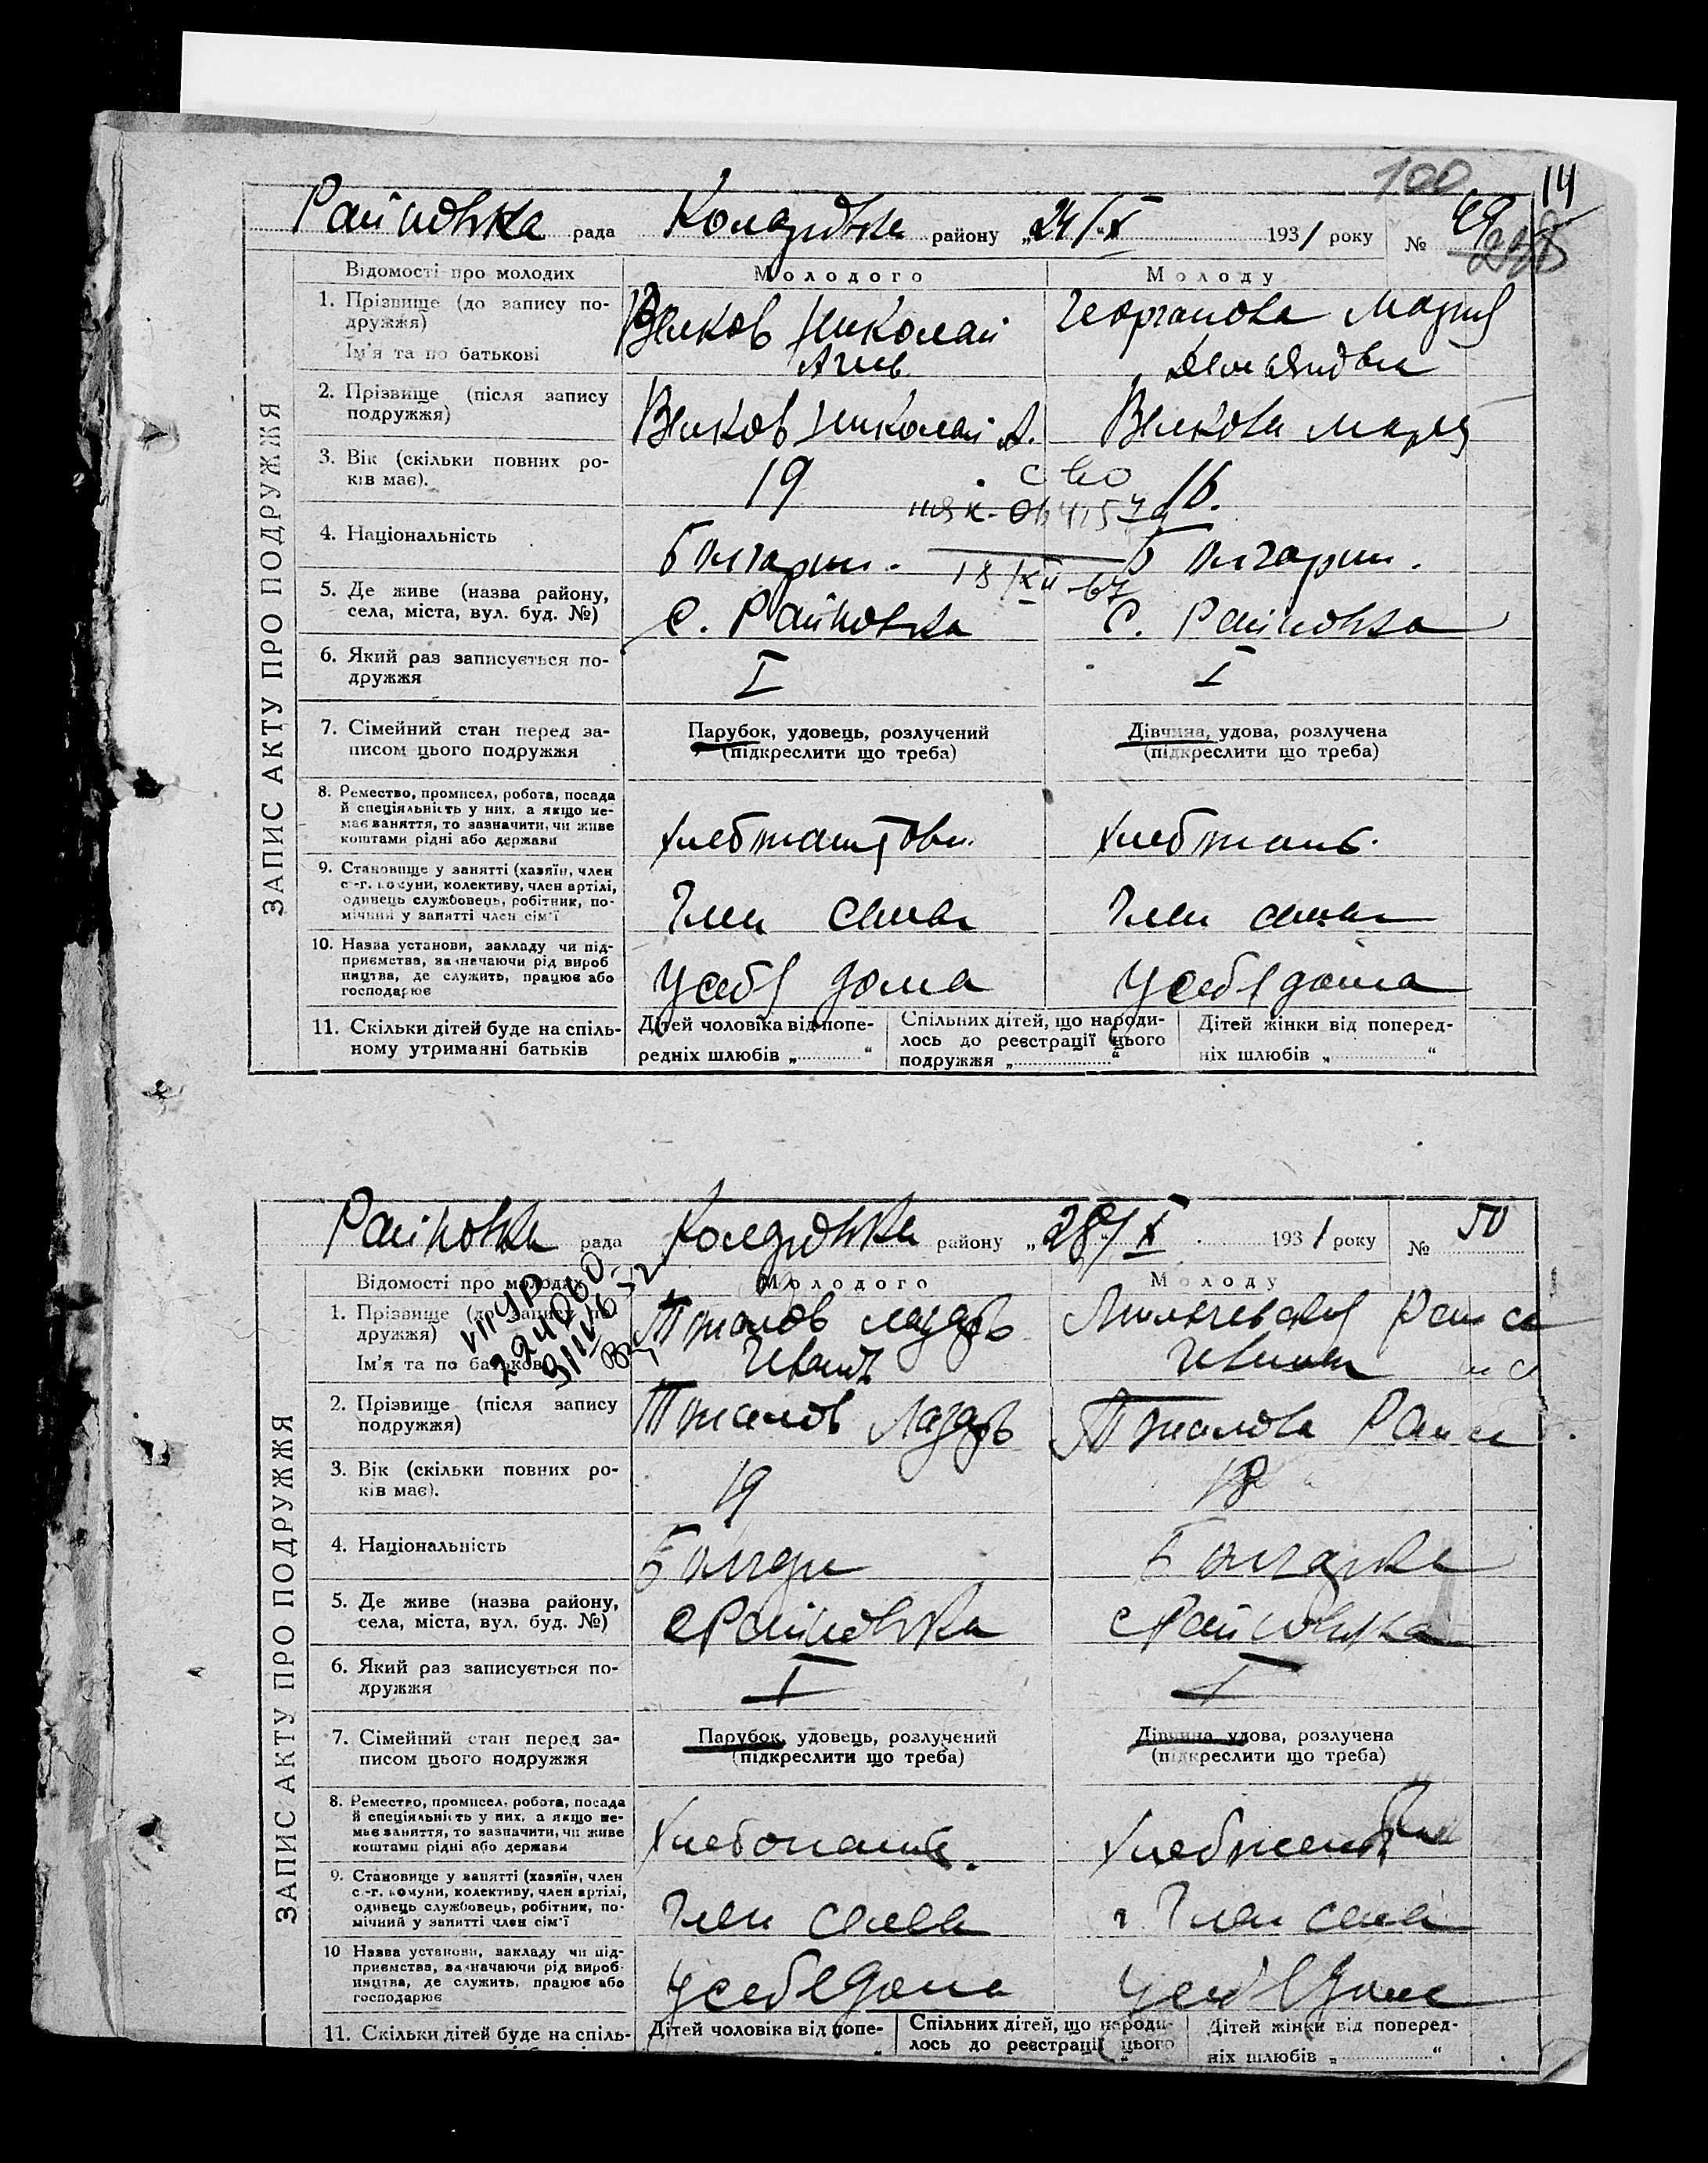 100 14
Райновка рада Коларовка району „24/X 1931 року № 49
Відомості про молодих Молодого Молоду
ЗАПИС АКТУ ПРО ПОДРУЖЖЯ
1. Прізвище (до запису по-
дружжя)
Ім'я та по батькові
Велков Николай
Георганова Мария
2. Прізвище (після запису
подружжя)
Велков Николай А. Велкова Мария
3. Вік (скільки повних ро-
ків має).
19 16.
4. Національність
Болгарин. Болгарин.
18/XII-67
5. Де живе (назва району,
села, міста, вул. буд. №)
С. Райновка С. Райновка
6. Який раз записується по-
дружжя
I I
7. Сімейний стан перед за-
писом цього подружжя
Парубок, удовець, розлучений
(підкреслити що треба)
Дівчина, удова, розлучена
(підкреслити що треба)
8. Ремество, промисел, робота, посада
й спеціяльність у них, а якщо не-
має заняття, то зазначити, чи живе
коштами рідні або держави
9. Становище у занятті (хазяїн, член
с.-г. комуни, колективу, член артілі,
одинець службовець, робітник, по-
мічний у занятті член сім'ї
Член семьи Член семьи
10. Назва установи, закладу чи під-
приємства, зазначаючи рід вироб
ництва, де служить, працює або
господарює
У себя дома У себя дома
11. Скільки дітей буде на спіль-
ному утриманні батьків
Дітей чоловіка від попе-
редніх шлюбів „ “
Спільних дітей, що народи-
лось до реєстрації цього
подружжя „ “
Дітей жінки від поперед-
ніх шлюбів „ “
Райновка рада Коларовка району „28/X 1931 року № 50
Відомості про молодих Молодого Молоду
ЗАПИС АКТУ ПРО ПОДРУЖЖЯ
1. Прізвище (до запису по-
дружжя)
Ім'я та по батькові
Лазарь
Раиса
2. Прізвище (після запису
подружжя)
Лазарь Раиса
3. Вік (скільки повних ро-
ків має).
19 18
4. Національність
Болгарка
5. Де живе (назва району,
села, міста, вул. буд. №)
с Райновка с Райновка
6. Який раз записується по-
дружжя
I I
7. Сімейний стан перед за-
писом цього подружжя
Парубок, удовець, розлучений
(підкреслити що треба)
Дівчина, удова, розлучена
(підкреслити що треба)
8. Ремество, промисел, робота, посада
й спеціяльність у них, а якщо не-
має заняття, то зазначити, чи живе
коштами рідні або держави
9. Становище у занятті (хазяїн, член
с.-г. комуни, колективу, член артілі,
одинець службовець, робітник, по-
мічний у занятті член сім'ї
Член семьи Член семьи
10 Назва установи, закладу чи під-
приємства, зазначаючи рід вироб-
ництва, де служить, працює або
господарює
У себя дома У себя доме
11. Скільки дітей буде на спіль-
Дітей чоловіка від попе-
Спільних дітей, що народи-
лось до реєстрації цього
Дітей жінки від поперед-
ніх шлюбів „ “